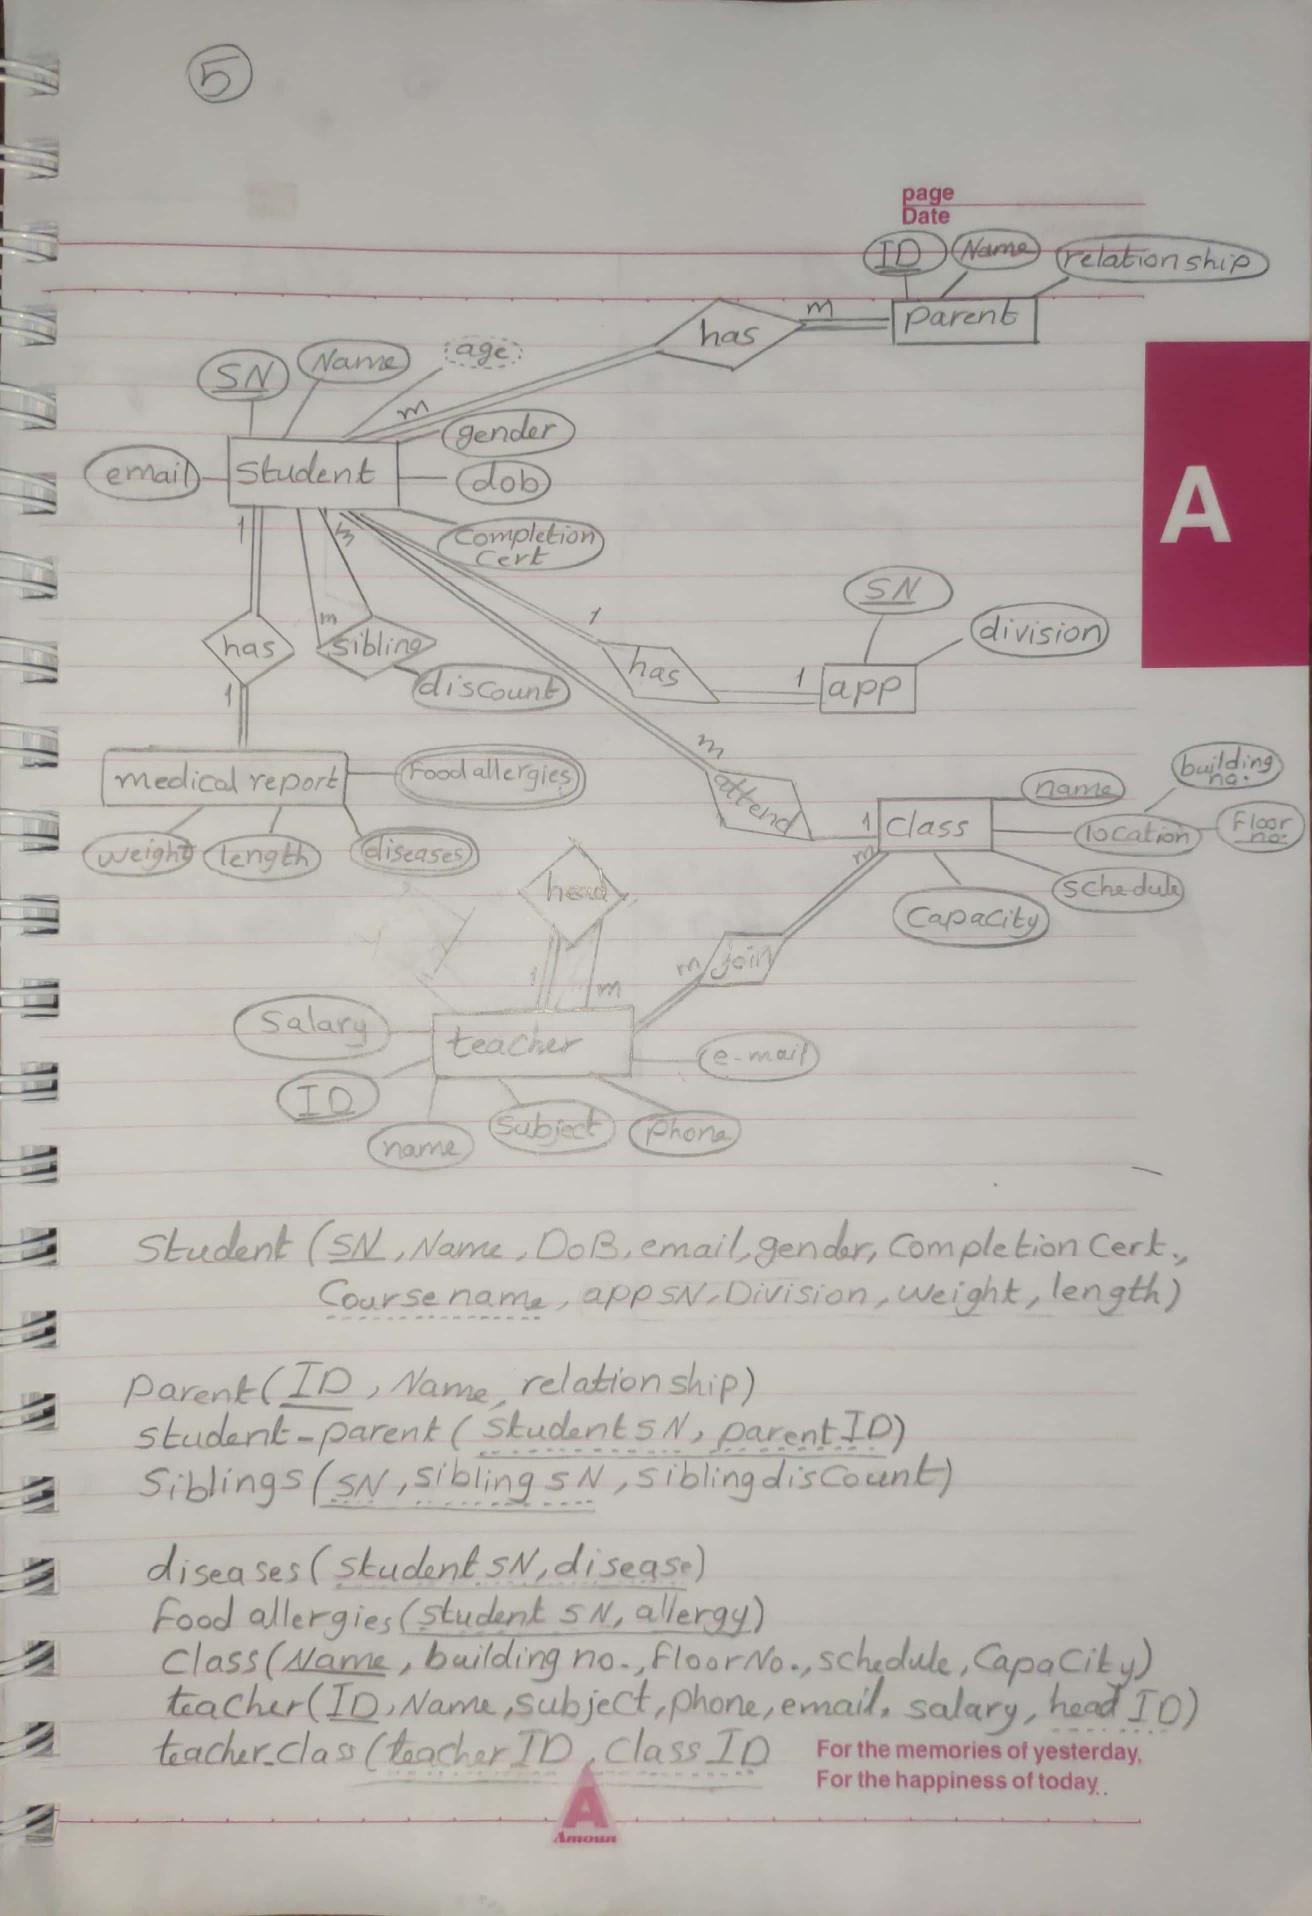 5
page
Date
ID
Name
relationship
has
m
parent
SN
Name
age
m
gender
email
student
dob
Completion
Cert
1
m
m
has
sibling
discount
1
1
has
1
app
SN
division
medical report
Food allergies
weight
length
diseases
m
attend
1
class
name
building
no.
location
Floor
no.
schedule
Capacity
m
join
m
head
1
m
Salary
teacher
e-mail
ID
name
Subject
Phone
A
Student (SN, Name, DoB, email, gender, Completion Cert.,
Course name, app SN, Division, weight, length)
parent(ID, Name, relationship)
student-parent( student SN, parent ID)
Siblings (SN, sibling SN, sibling discount)
diseases( student SN, disease)
Food allergies(student SN, allergy)
Class(Name, building no., Floor No., schedule, Capacity)
teacher(ID, Name, subject, phone, email, salary, head ID)
teacher_class (teacher ID, Class ID
For the memories of yesterday,
For the happiness of today..
A
Amoun